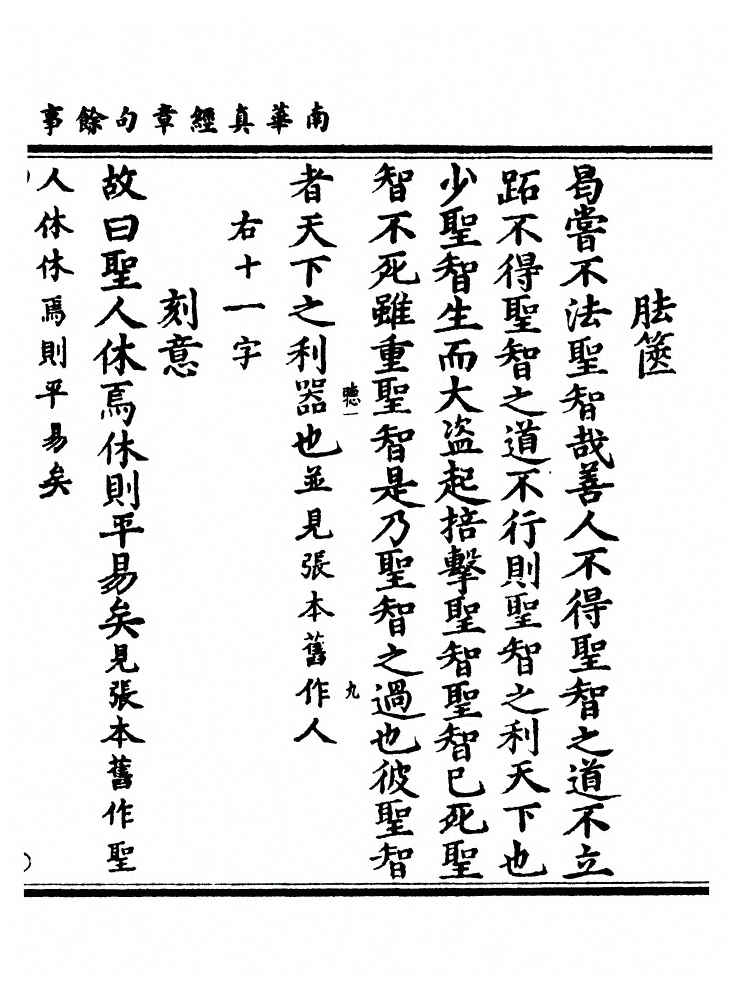 南華真經章句餘事
胠篋
曷嘗不法聖智哉善人不得聖智之道不立
跖不得聖智之道不行則聖智之利天下也
少聖智生而大盜起掊擊聖智聖智已死聖
智不死雖重聖智是乃聖智之過也彼聖智
聽一
九
者天下之利器也並見張本舊作人
右十一字
刻意
故曰聖人休焉休則平易矣見張本舊作聖
人休休焉則平易矣